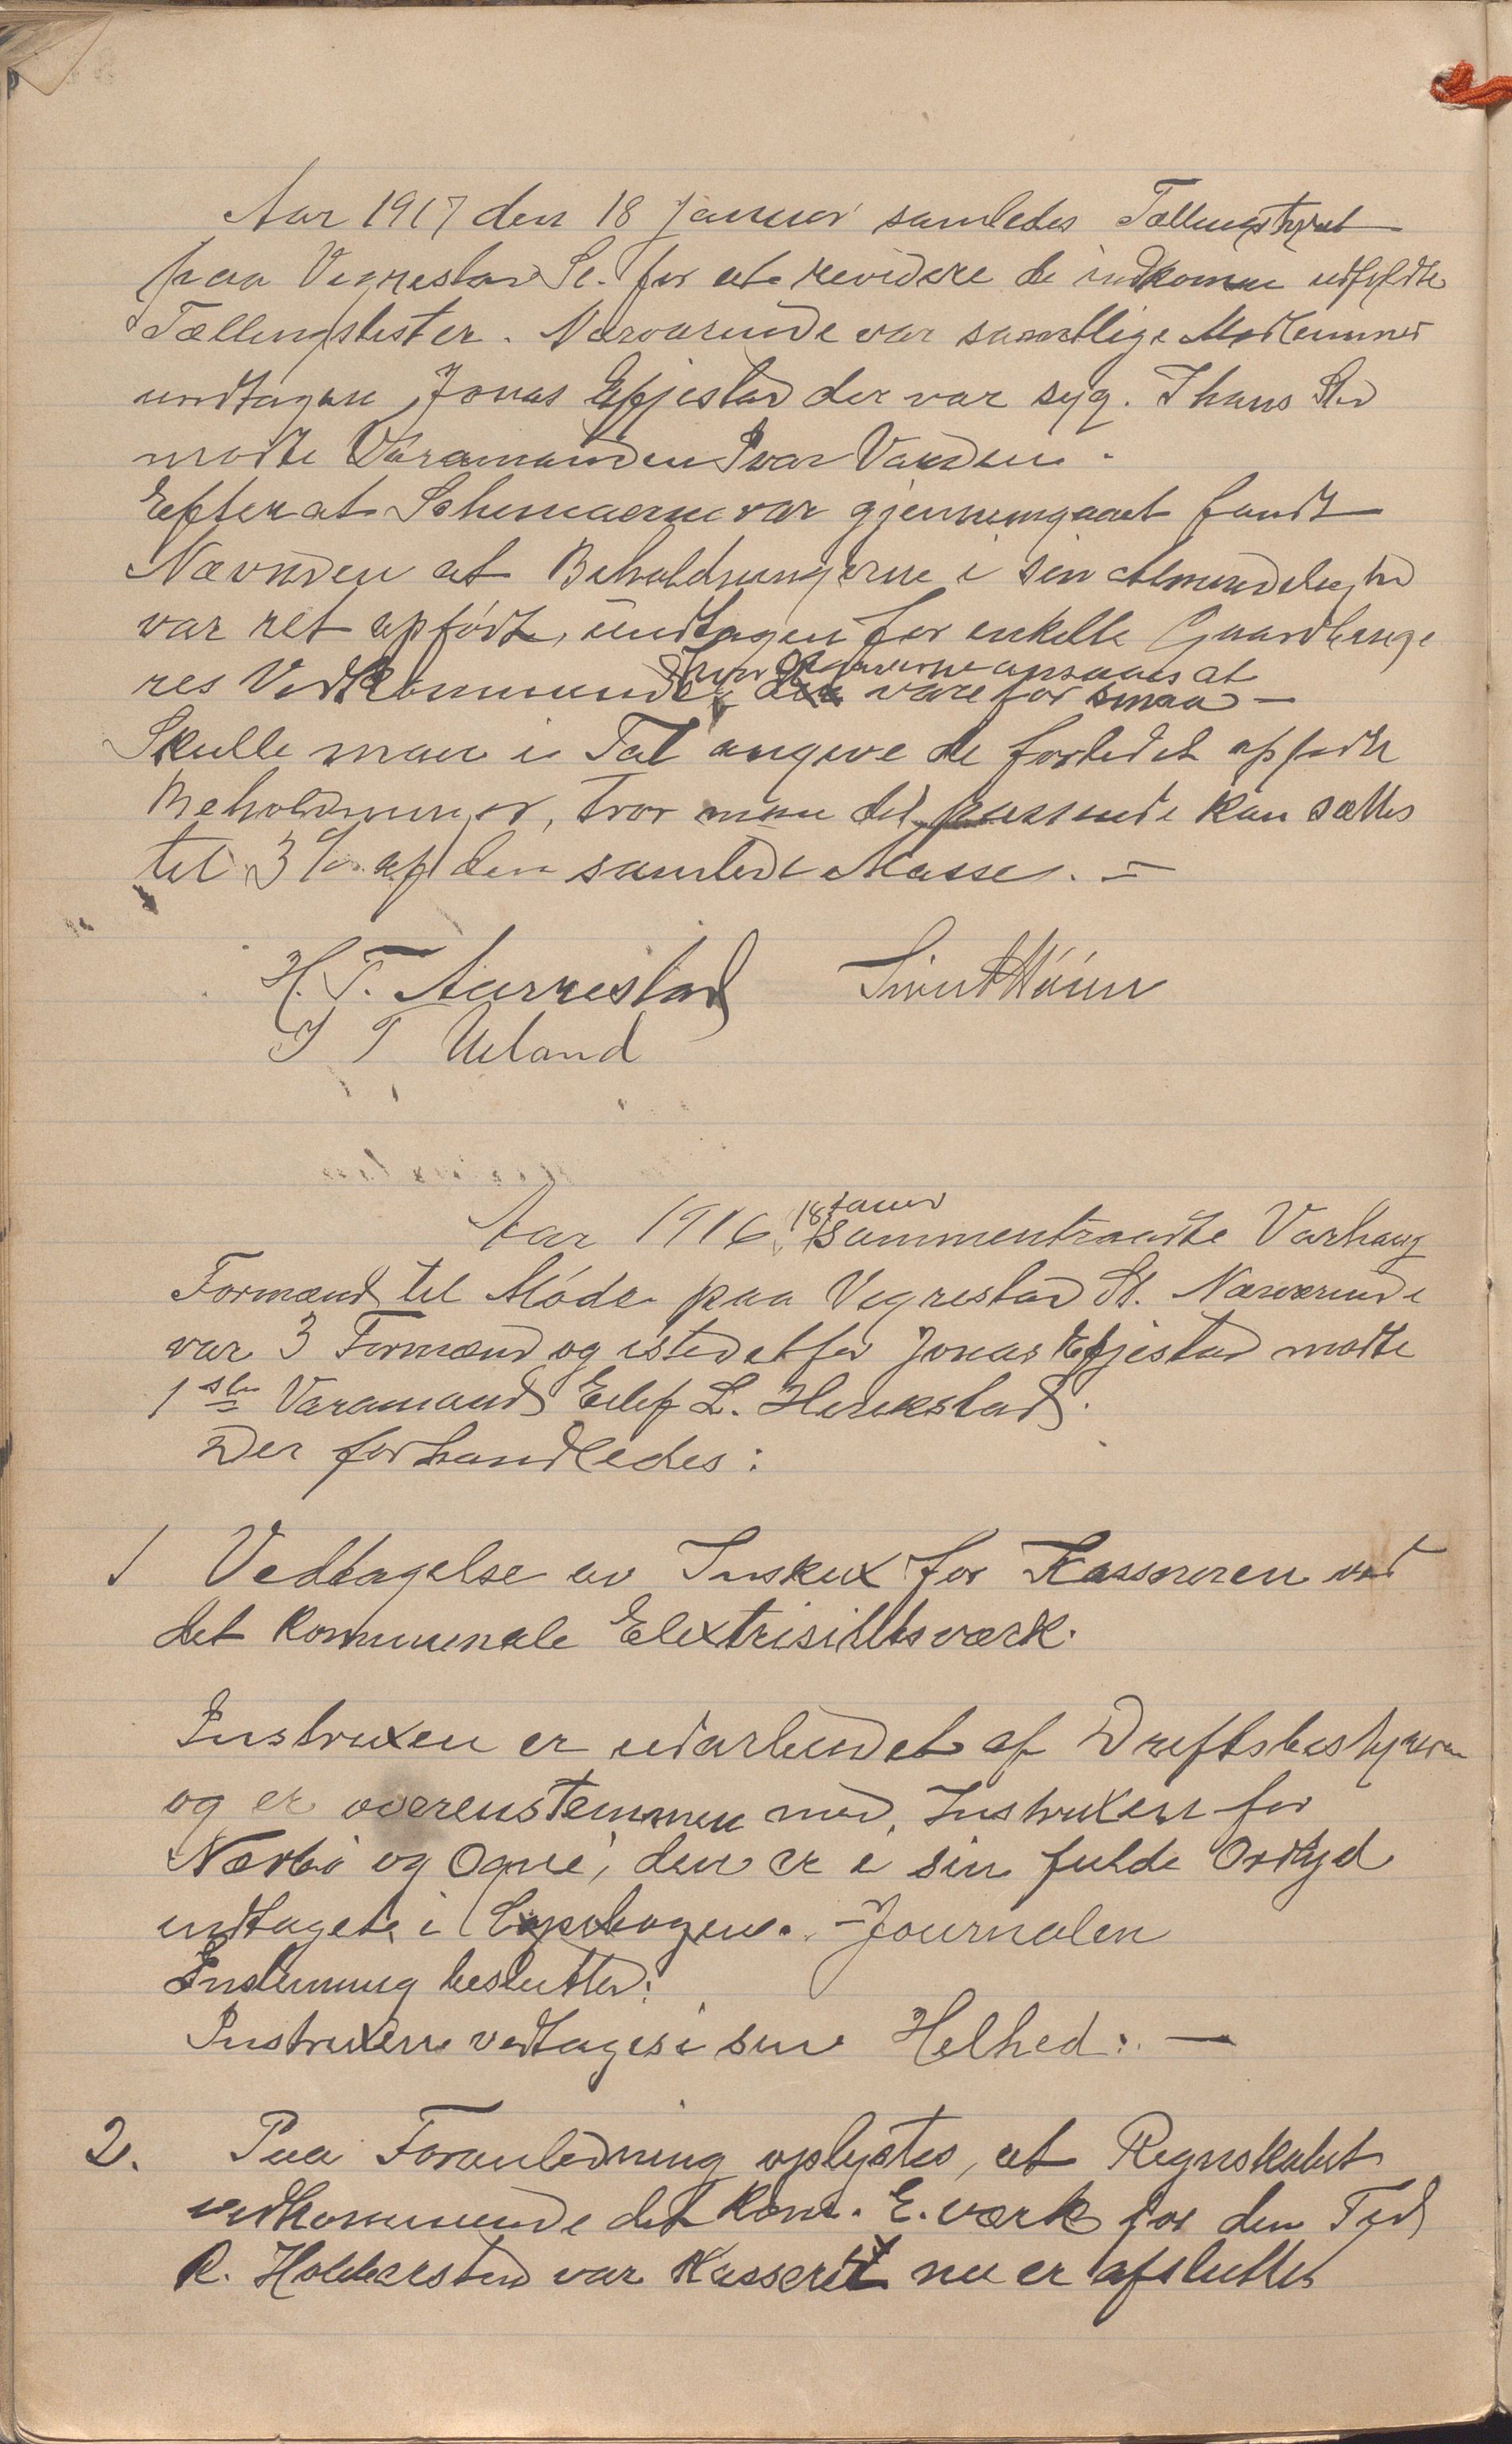 Aar 1917 den 18 Januar samledes Tællingstyret
paa Vigrestad St. for at revidere de indkomne udfyldte
Tællingslister. Nærværende var samtlige Medlemmer
undtagen Jonas Efjestad der var syg. I hans Sted
mødte Varamanden Ivar Vanden.
Efterat Schemaerne var gjennemgaaet fandt
Nævnden at Beholdningerne i sin Almindelighed
var ret opført, undtagen for enkelte Gaardbruge
res Vedkommende, hvor Opgaverne ansaaes at
være for smaa –
Skulle man i Tal angive de for lidet opførte
Beholdninger, tror man det passende kan sættes
til 3 % af den samlede Masse. –
H. T. Aarrestad
T T Ueland
Aar 1916 18 Januar sammentraadte Varhaug
Formænd til Møde paa Vigrestad St. Nærværende
var 3 Formænd og istedetfor Jonas Efjestad mødte
1ste Varamand Eilef L. Herikstad.
Der forhandledes:
1 Vedtagelse av Instrux for Kassereren ved
det kommunale Elextrisitetsværk.
Instruxen er udarbeidet af Driftsbestyreren
og er overenstemmen med, Instruxen for
Nærbø og Ogne, den er i sin fulde Ordlyd
indtaget i Copibogen. – Journalen
Enstemmig besluttet:
Instruxen vedtages i sin Helhed. –
2. Paa Foranledning oplystes, at Regnskabet
vedkommende det Kom. E.værk for den Tid
R. Hobberstad var Kasserer nu er afsluttet